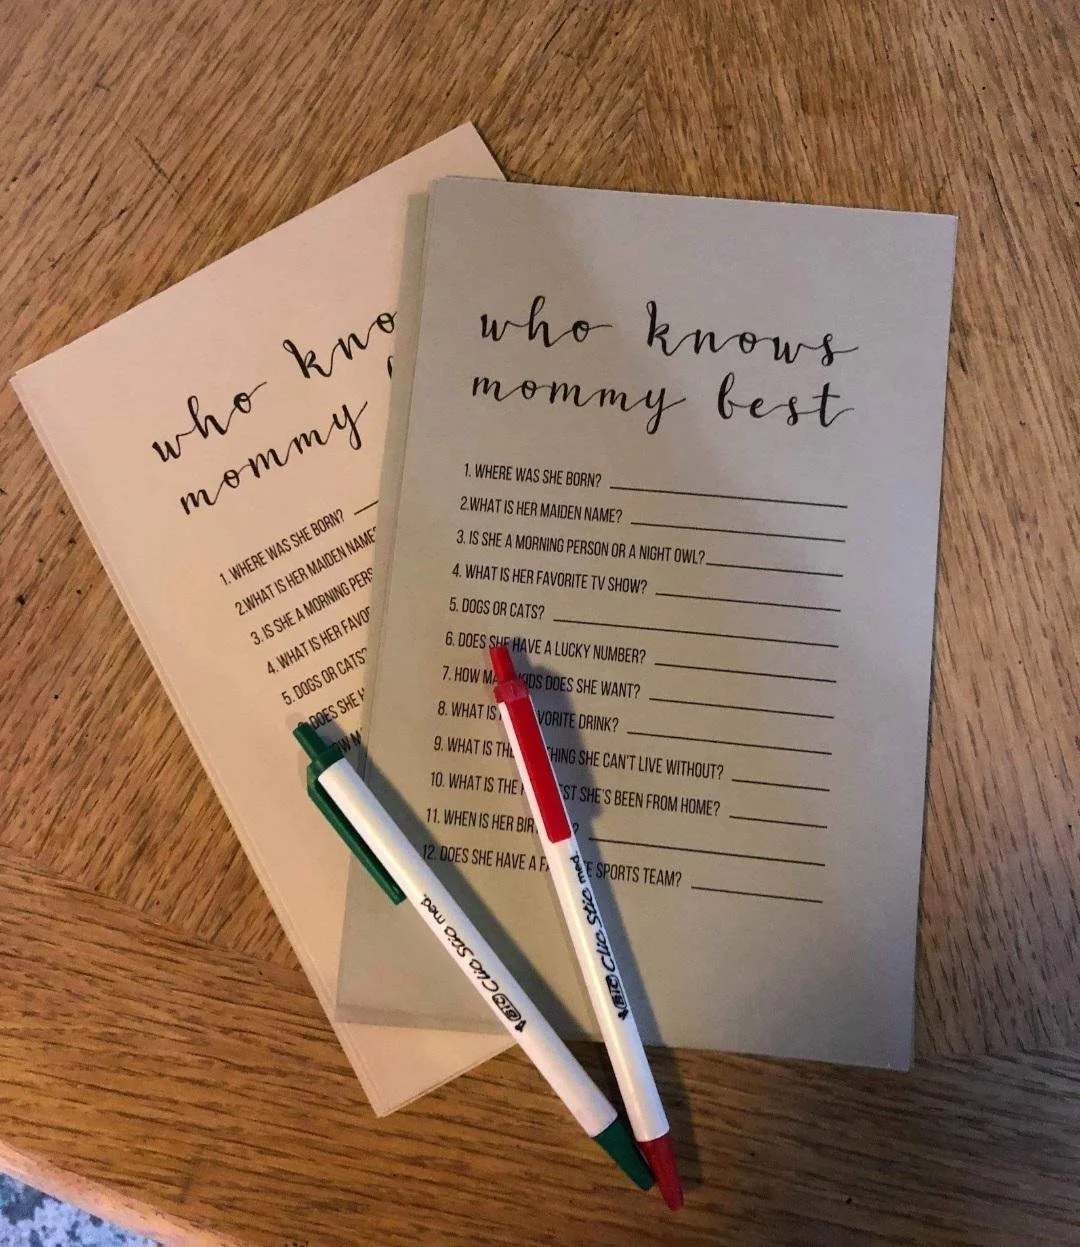 who kno
mommy
1. WHERE WAS SHE BORN?
2.WHAT IS HER MAIDEN NAME
3. IS SHE A MORNING PERS
4. WHAT IS HER FAVO
5. DOGS OR CATS?
DOES SHE
who knows
mommy best
1. WHERE WAS SHE BORN?
2.WHAT IS HER MAIDEN NAME?
3. IS SHE A MORNING PERSON OR A NIGHT OWL?
4. WHAT IS HER FAVORITE TV SHOW?
5. DOGS OR CATS?
6. DOES SHE HAVE A LUCKY NUMBER?
7. HOW MA KIDS DOES SHE WANT?
8. WHAT IS VORITE DRINK?
9. WHAT IS THE THING SHE CAN'T LIVE WITHOUT?
10. WHAT IS THE F EST SHE'S BEEN FROM HOME?
11. WHEN IS HER BIR ?
12. DOES SHE HAVE A FA E SPORTS TEAM?
BIC Clic Stic med.
BIC Clic Stic med.